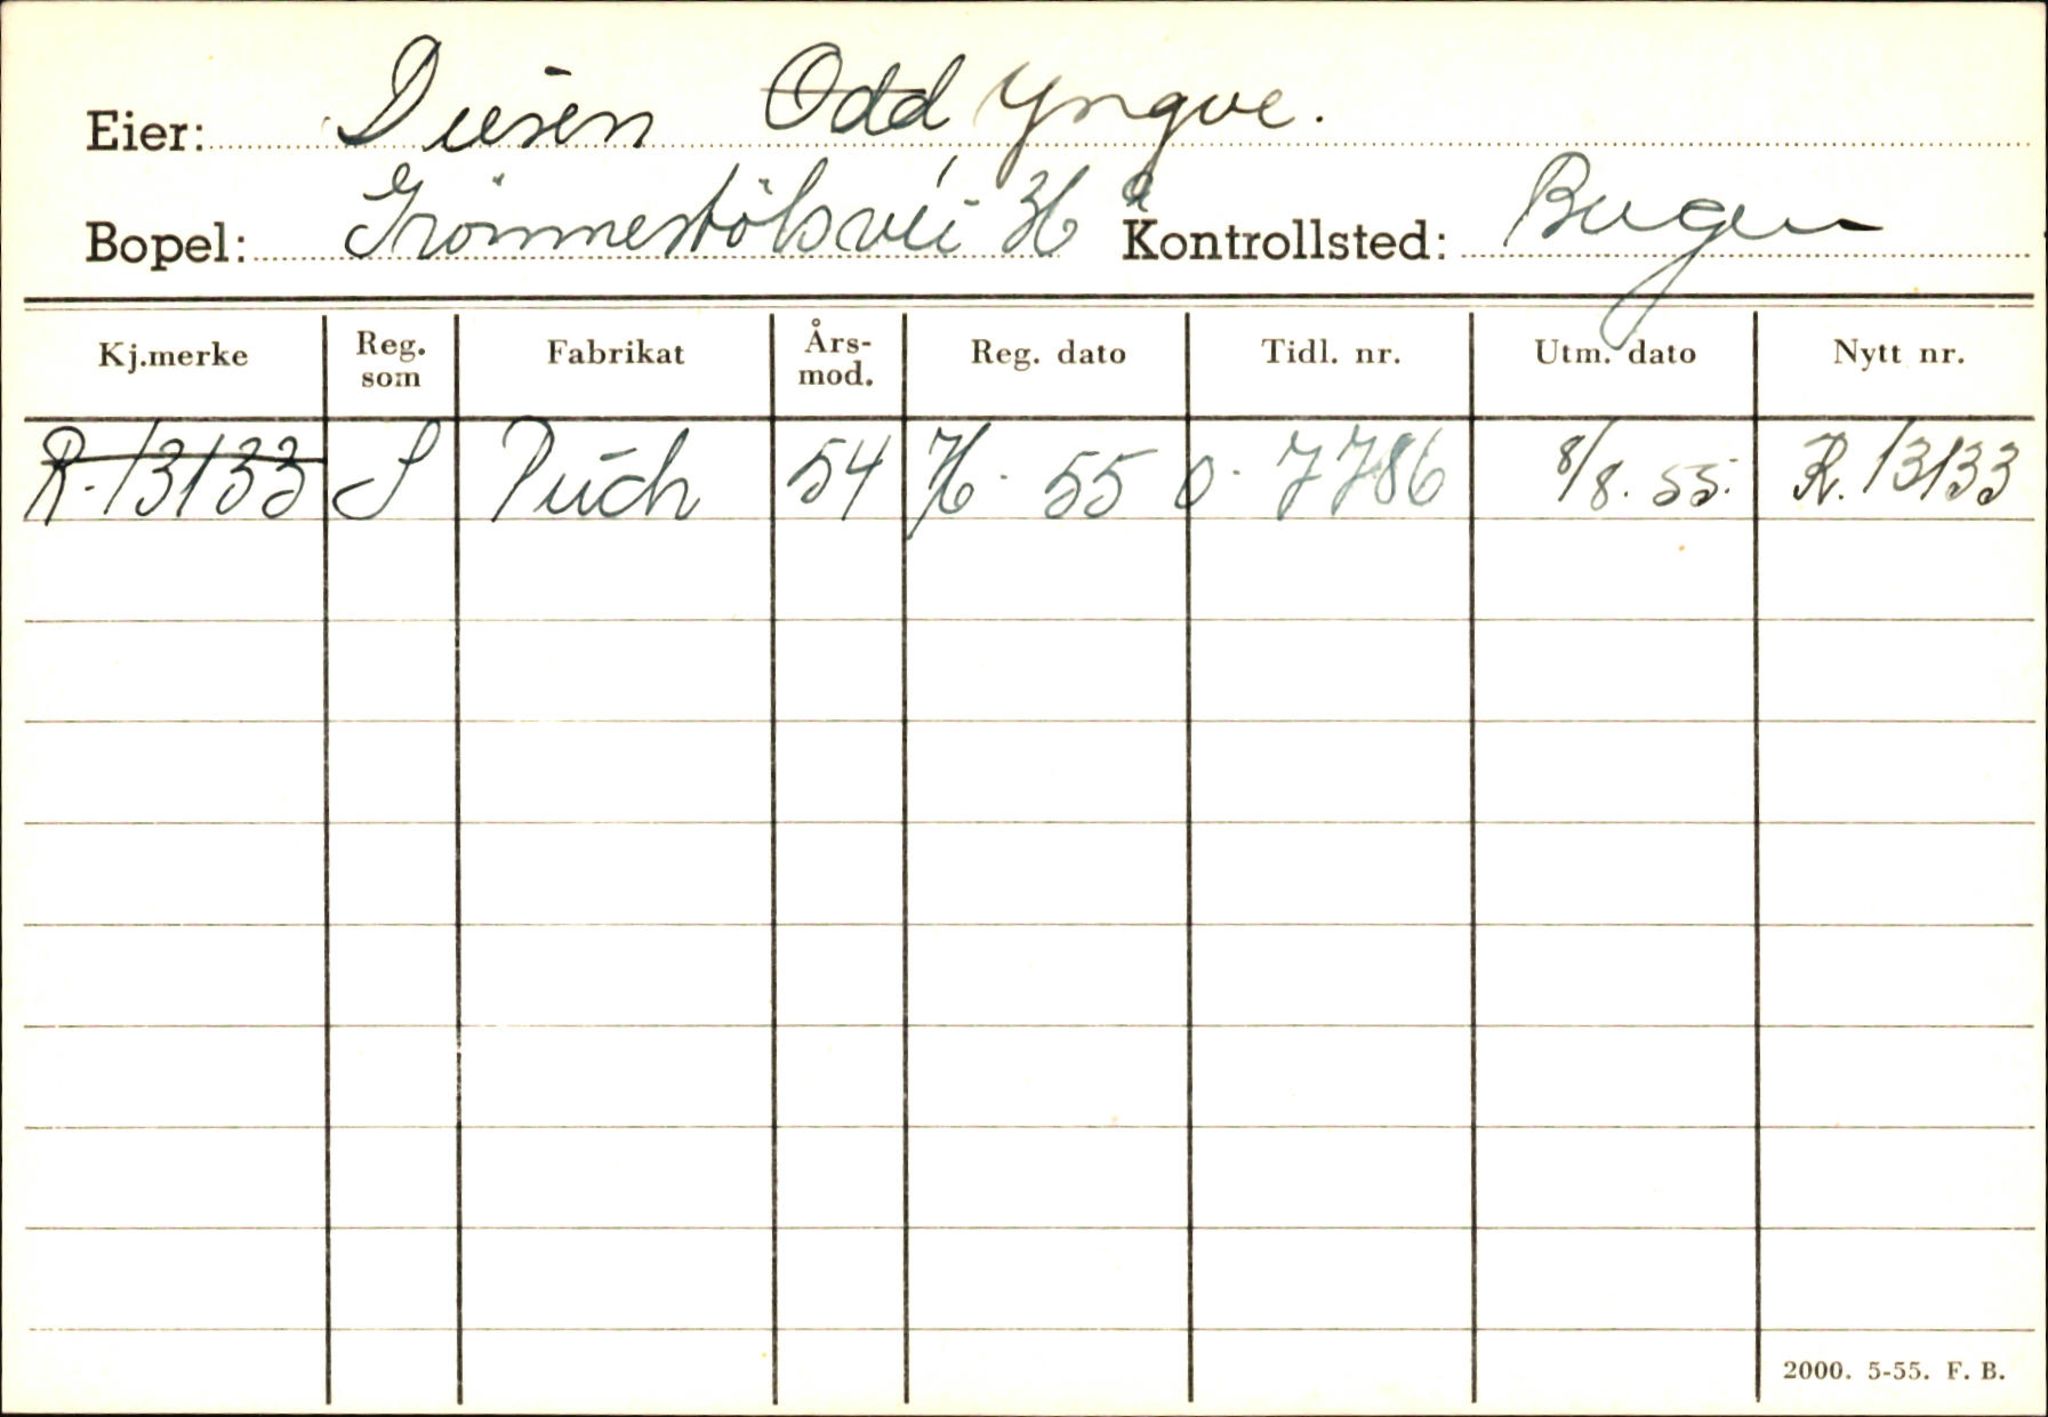 Eier: Diesen Odd Yngve.
Bopel: Grönnestölsvei 36 a Kontrollsted: Bergen
Kj.merke Reg. som Fabrikat Års-mod. Reg. dato Tidl. nr. Utm. dato Nytt nr.
R-13133 S Puch 54 55 O-7786 8/8.55. R.13133
2000. 5-55. F. B.